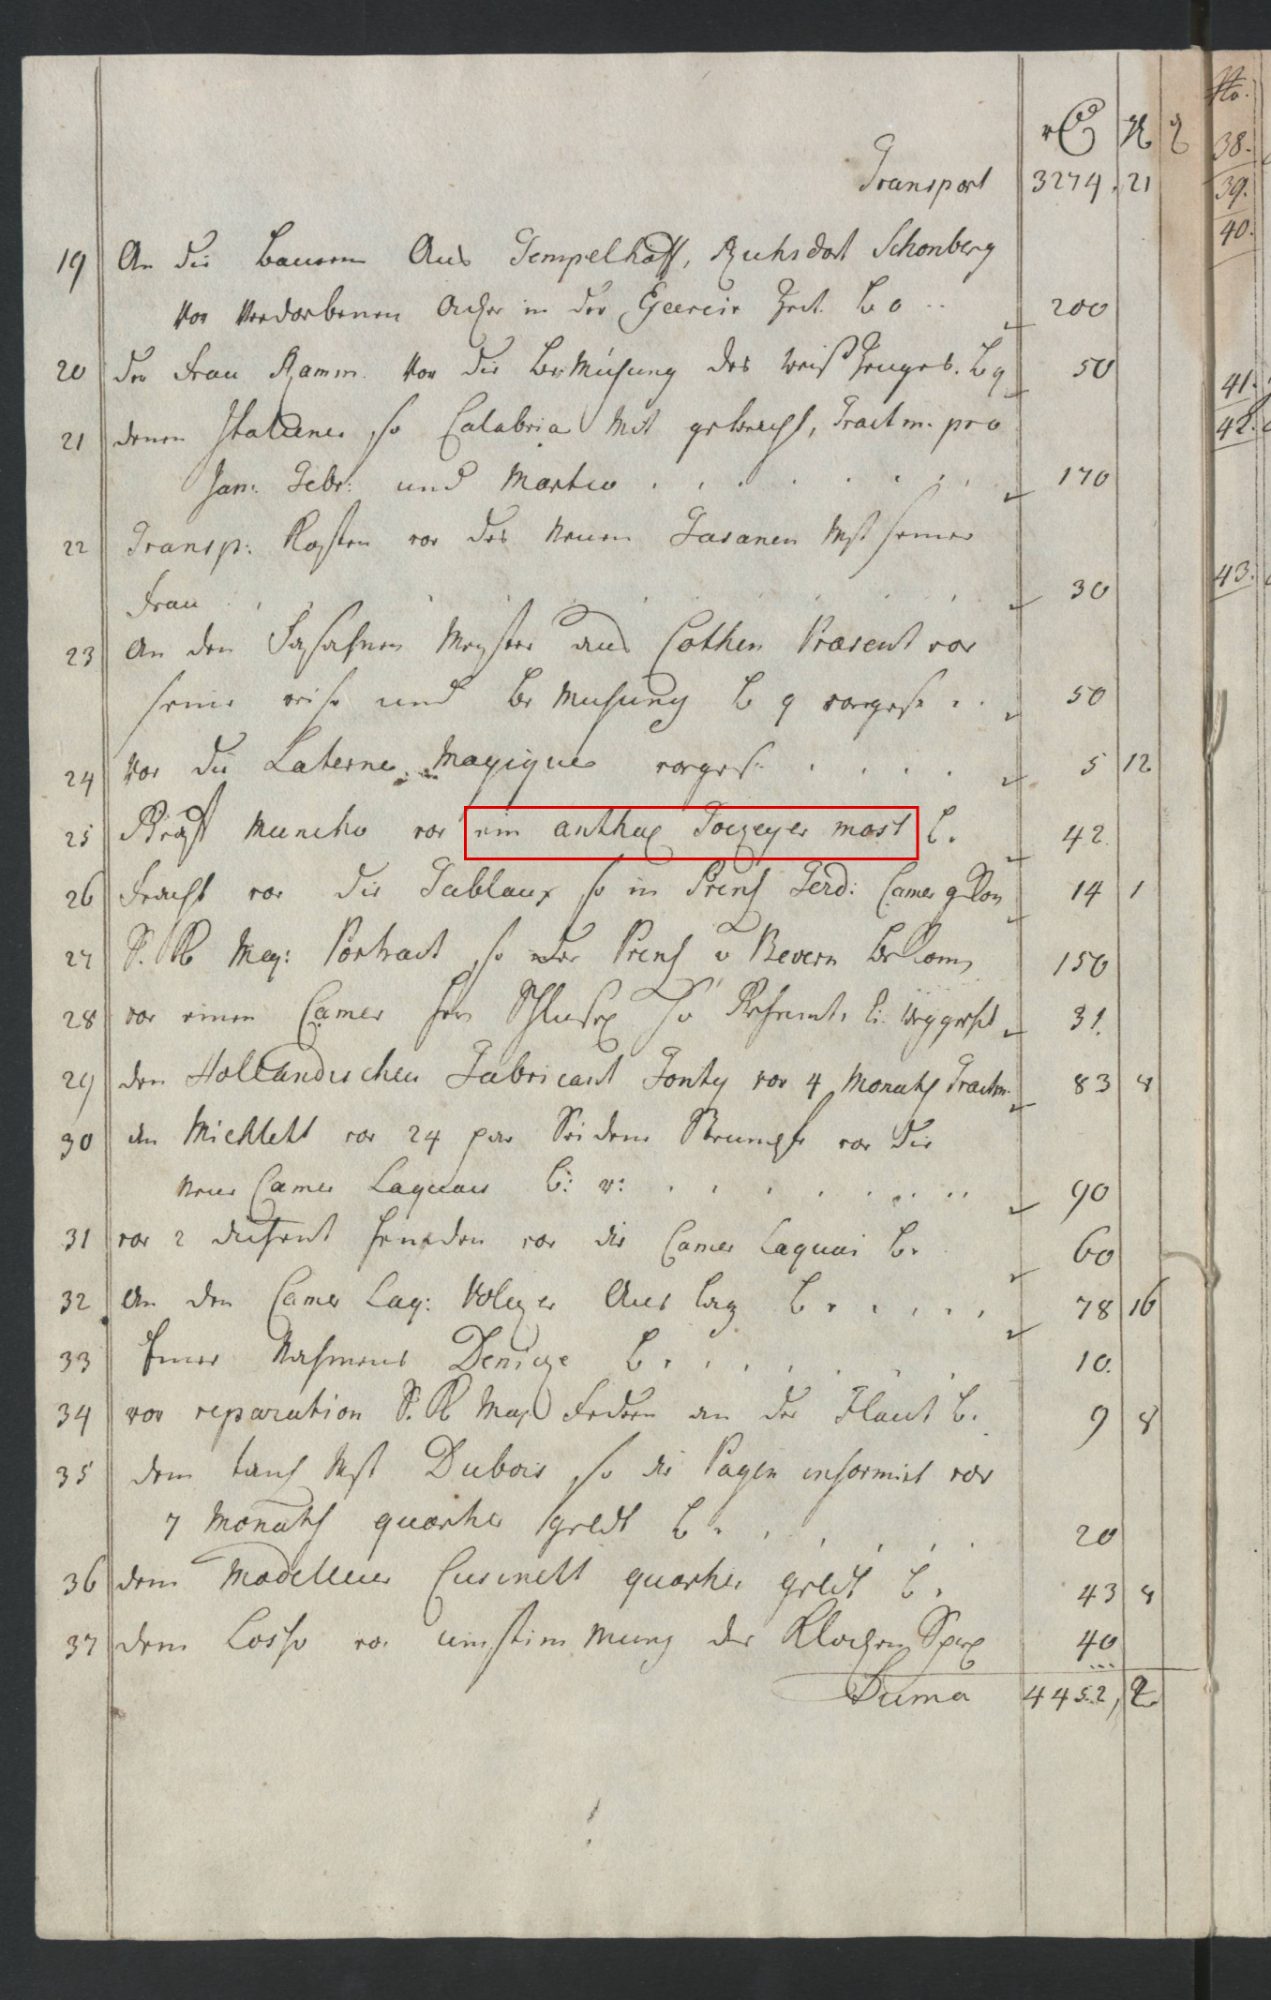 Transport 3274. 21
19 An die Bauern Aus Tempelhoff, Ruhsdorf Schonberg
vor verdorbenen Acker in der Exercir Zeit. 200
20 der Frau Ramm. vor die Bemühung des Weiß Zeuges. 50
21 denen Italiener so Calabria Mit gebracht, Tractm. pro
Jan: Febr: und Martio 170
22 Transp: Kosten vor des neuen Fasanen Mst seiner
Frau 30
23 An den Fasahnen Meyster aus Cothen Praesent vor
seine reise und be Muhung 50
24 vor die Laterne Magique 5 12
25 vor ein anthal Tockeyer most 42
26 Fracht vor die Tableaux so in Prens Ferd: Camer 14 1
27 S. K May: Portrait so der Prens v Bevern bekom 150
28 vor einen Camer hern Schlusel so 31.
29 den Hollandischen Fabricant Fonty vor 4 Monaht Tractm. 83 8
30 an Micklett vor 24 par Seidene Strumpfe vor die
neue Camer Laquaien 90
31 vor 2 dutzent hembden vor die Camer Laquai 60
32 An den Camer Laq: Auslag 78 16
33 Einer Nahmens 10.
34 vor reparation S. K May Federn an der Flaut 9 8
35 dem tans Mst Dubois so die Pagen informirt vor
7 Monaht quartier geldt 20
36 dem Modelleur Cusinett quartier geldt 43 8
37 dem Losso vor umstimmung der Klocken Spiel 40
Suma 4452, 2
No.
38.
39.
40.
41.
42.
43.